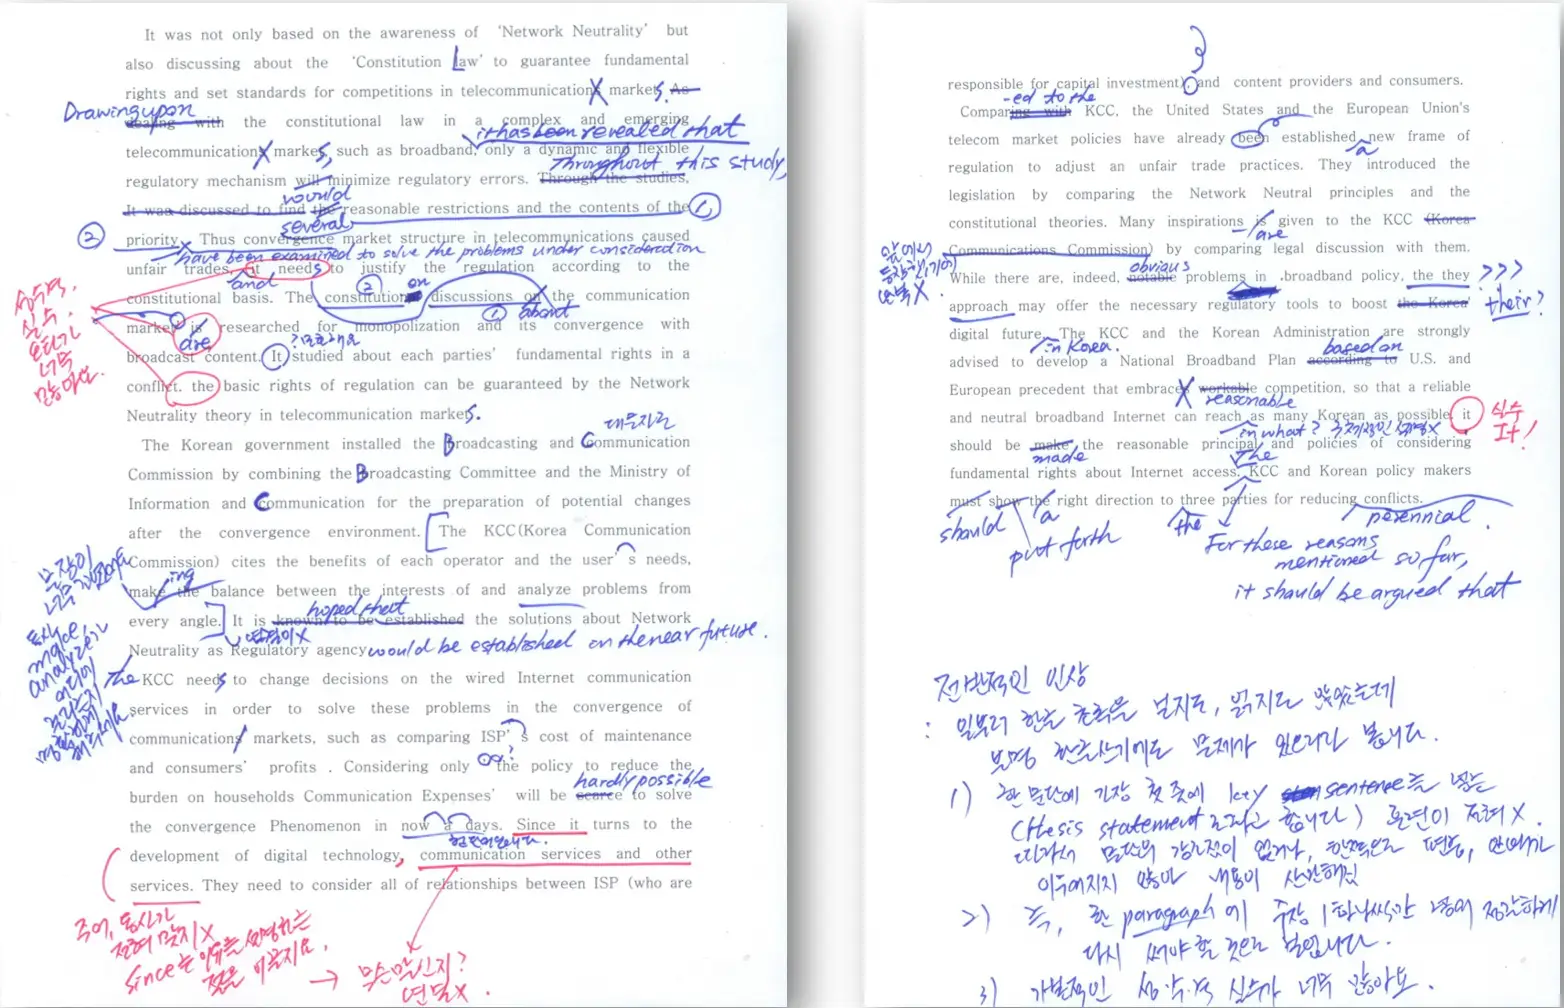 It was not only based on the awareness of 'Network Neutrality' but
also discussing about the 'Constitution Law' to guarantee fundamental
rights and set standards for competitions in telecommunications markets. As
Drawing upon
dealing with the constitutional law in a complex and emerging
it has been revealed that
telecommunications markets, such as broadband, only a dynamic and flexible
Throughout this study,
regulatory mechanism will minimize regulatory errors. Through the studies,
would
It was discussed to find the reasonable restrictions and the contents of the ①
several
② priority. Thus convergence market structure in telecommunications caused
have been examined to solve the problems under consideration
unfair trades, it needs to justify the regulation according to the
and
constitutional basis. The constitution discussions on the communication
② on
① about
market is researched for monopolization and its convergence with
are
broadcast content. It studied about each parties' fundamental rights in a
conflict. the basic rights of regulation can be guaranteed by the Network
Neutrality theory in telecommunication markets.
성수격,
실수.
오타가
너무
많아요.
대문자로
The Korean government installed the Broadcasting and Communication
Commission by combining the Broadcasting Committee and the Ministry of
Information and Communication for the preparation of potential changes
after the convergence environment. The KCC(Korea Communication
Commission) cites the benefits of each operator and the user's needs,
ing
make the balance between the interests of and analyze problems from
hoped that
every angle. It is known to be established the solutions about Network
연결이 X
Neutrality as Regulatory agency would be established on the near future.
The KCC needs to change decisions on the wired Internet communication
services in order to solve these problems in the convergence of
communications markets, such as comparing ISP's cost of maintenance
and consumers' profits . Considering only 'the policy to reduce the
hardly possible
burden on households Communication Expenses' will be scarce to solve
the convergence Phenomenon in now a days. Since it turns to the
development of digital technology, communication services and other
services. They need to consider all of relationships between ISP (who are
문장이
너무
동사로
make,
analyze가
어디에
걸리는지
주어, 동사가
전혀 맞지 X
since는 이유를 설명하는
절을 이끌지요.
→ 무슨 말인지?
연결 X.
responsible for capital investment), and content providers and consumers.
-ed to the
Comparing with KCC, the United States and the European Union's
telecom market policies have already been established new frame of
a
regulation to adjust an unfair trade practices. They introduced the
legislation by comparing the Network Neutral principles and the
constitutional theories. Many inspirations is given to the KCC (Korea
are
Communications Commission) by comparing legal discussion with them.
obvious
While there are, indeed, notable problems in broadband policy, the they >>>
approach may offer the necessary regulatory tools to boost the Korea'
their?
digital future. The KCC and the Korean Administration are strongly
in Korea.
based on
advised to develop a National Broadband Plan according to U.S. and
European precedent that embraces workable competition, so that a reliable
reasonable
and neutral broadband Internet can reach as many Korean as possible. it
실수
It!
in what? 구체적인 설명 X
should be make the reasonable principal and policies of considering
made
The
fundamental rights about Internet access. KCC and Korean policy makers
must show the right direction to three parties for reducing conflicts.
should
a
put forth
the
perennial.
For these reasons
mentioned so far,
it should be argued that
앞에서
반복 X.
전반적인 인상
: 일부러 한글 초록을 보지도, 읽지도 않았는데
분명 한글쓰기에도 문제가 있으리라 봅니다.
1) 한 문단에 가장 첫 줄에 key sentence를 넣는
(thesis statement 라고 합니다) 훈련이 전혀 X.
따라서 문단의 강조점이 없거나, 한쪽으로 편중, 안배가
이루어지지 않아 내용이 산만해짐
2) 즉, 한 paragraph에 주장 1하나씩만 넣어 정갈하게
다시 써야 할 것으로 보입니다.
3) 기본적인 성·수·격 실수가 너무 많아요.